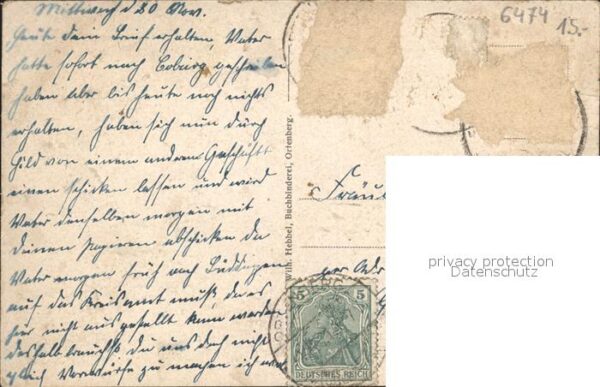 Mittwoch d 20 Nov.
Heute dein Brief erhalten, Vater
hatte sofort nach Coburg geschrieben
haben aber bis heute noch nichts
erhalten, haben sich nun durch
Hild von einem anderen Geschäft
einen schicken lassen und wird
Vater denselben morgen mit
deinen Papieren abschicken da
Vater morgen früh nach Büdingen
auf das Kreisamt muß, da es
hier nicht ausgestellt kann werden
deshalb brauchst du uns doch nicht
gleich Vorwürfe zu machen ich
6474
15.-
Wilh. Hebbel, Buchbinderei, Ortenberg.
Fräul
per Adr
privacy protection
Datenschutz
5 5
DEUTSCHES REICH